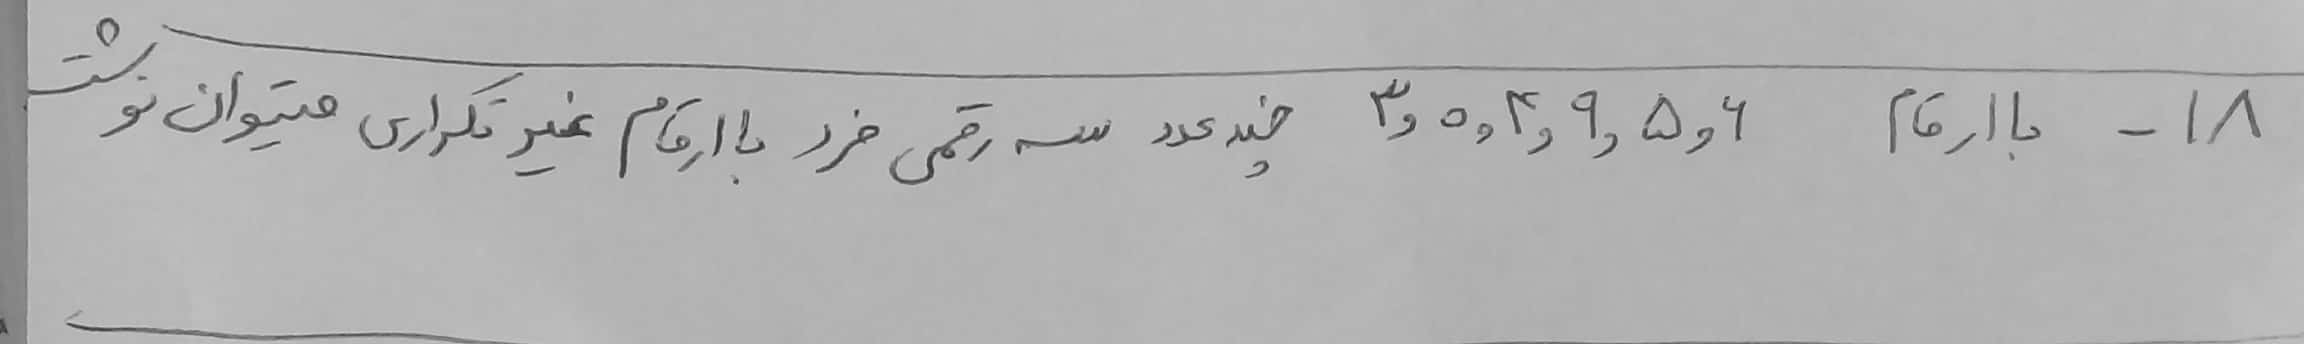 ۱۸- با ارقام ۶ و ۵ و ۹ و ۴ و ۰ و ۳ چند عدد سه رقمی فرد با ارقام غیر تکراری میتوان نوشت